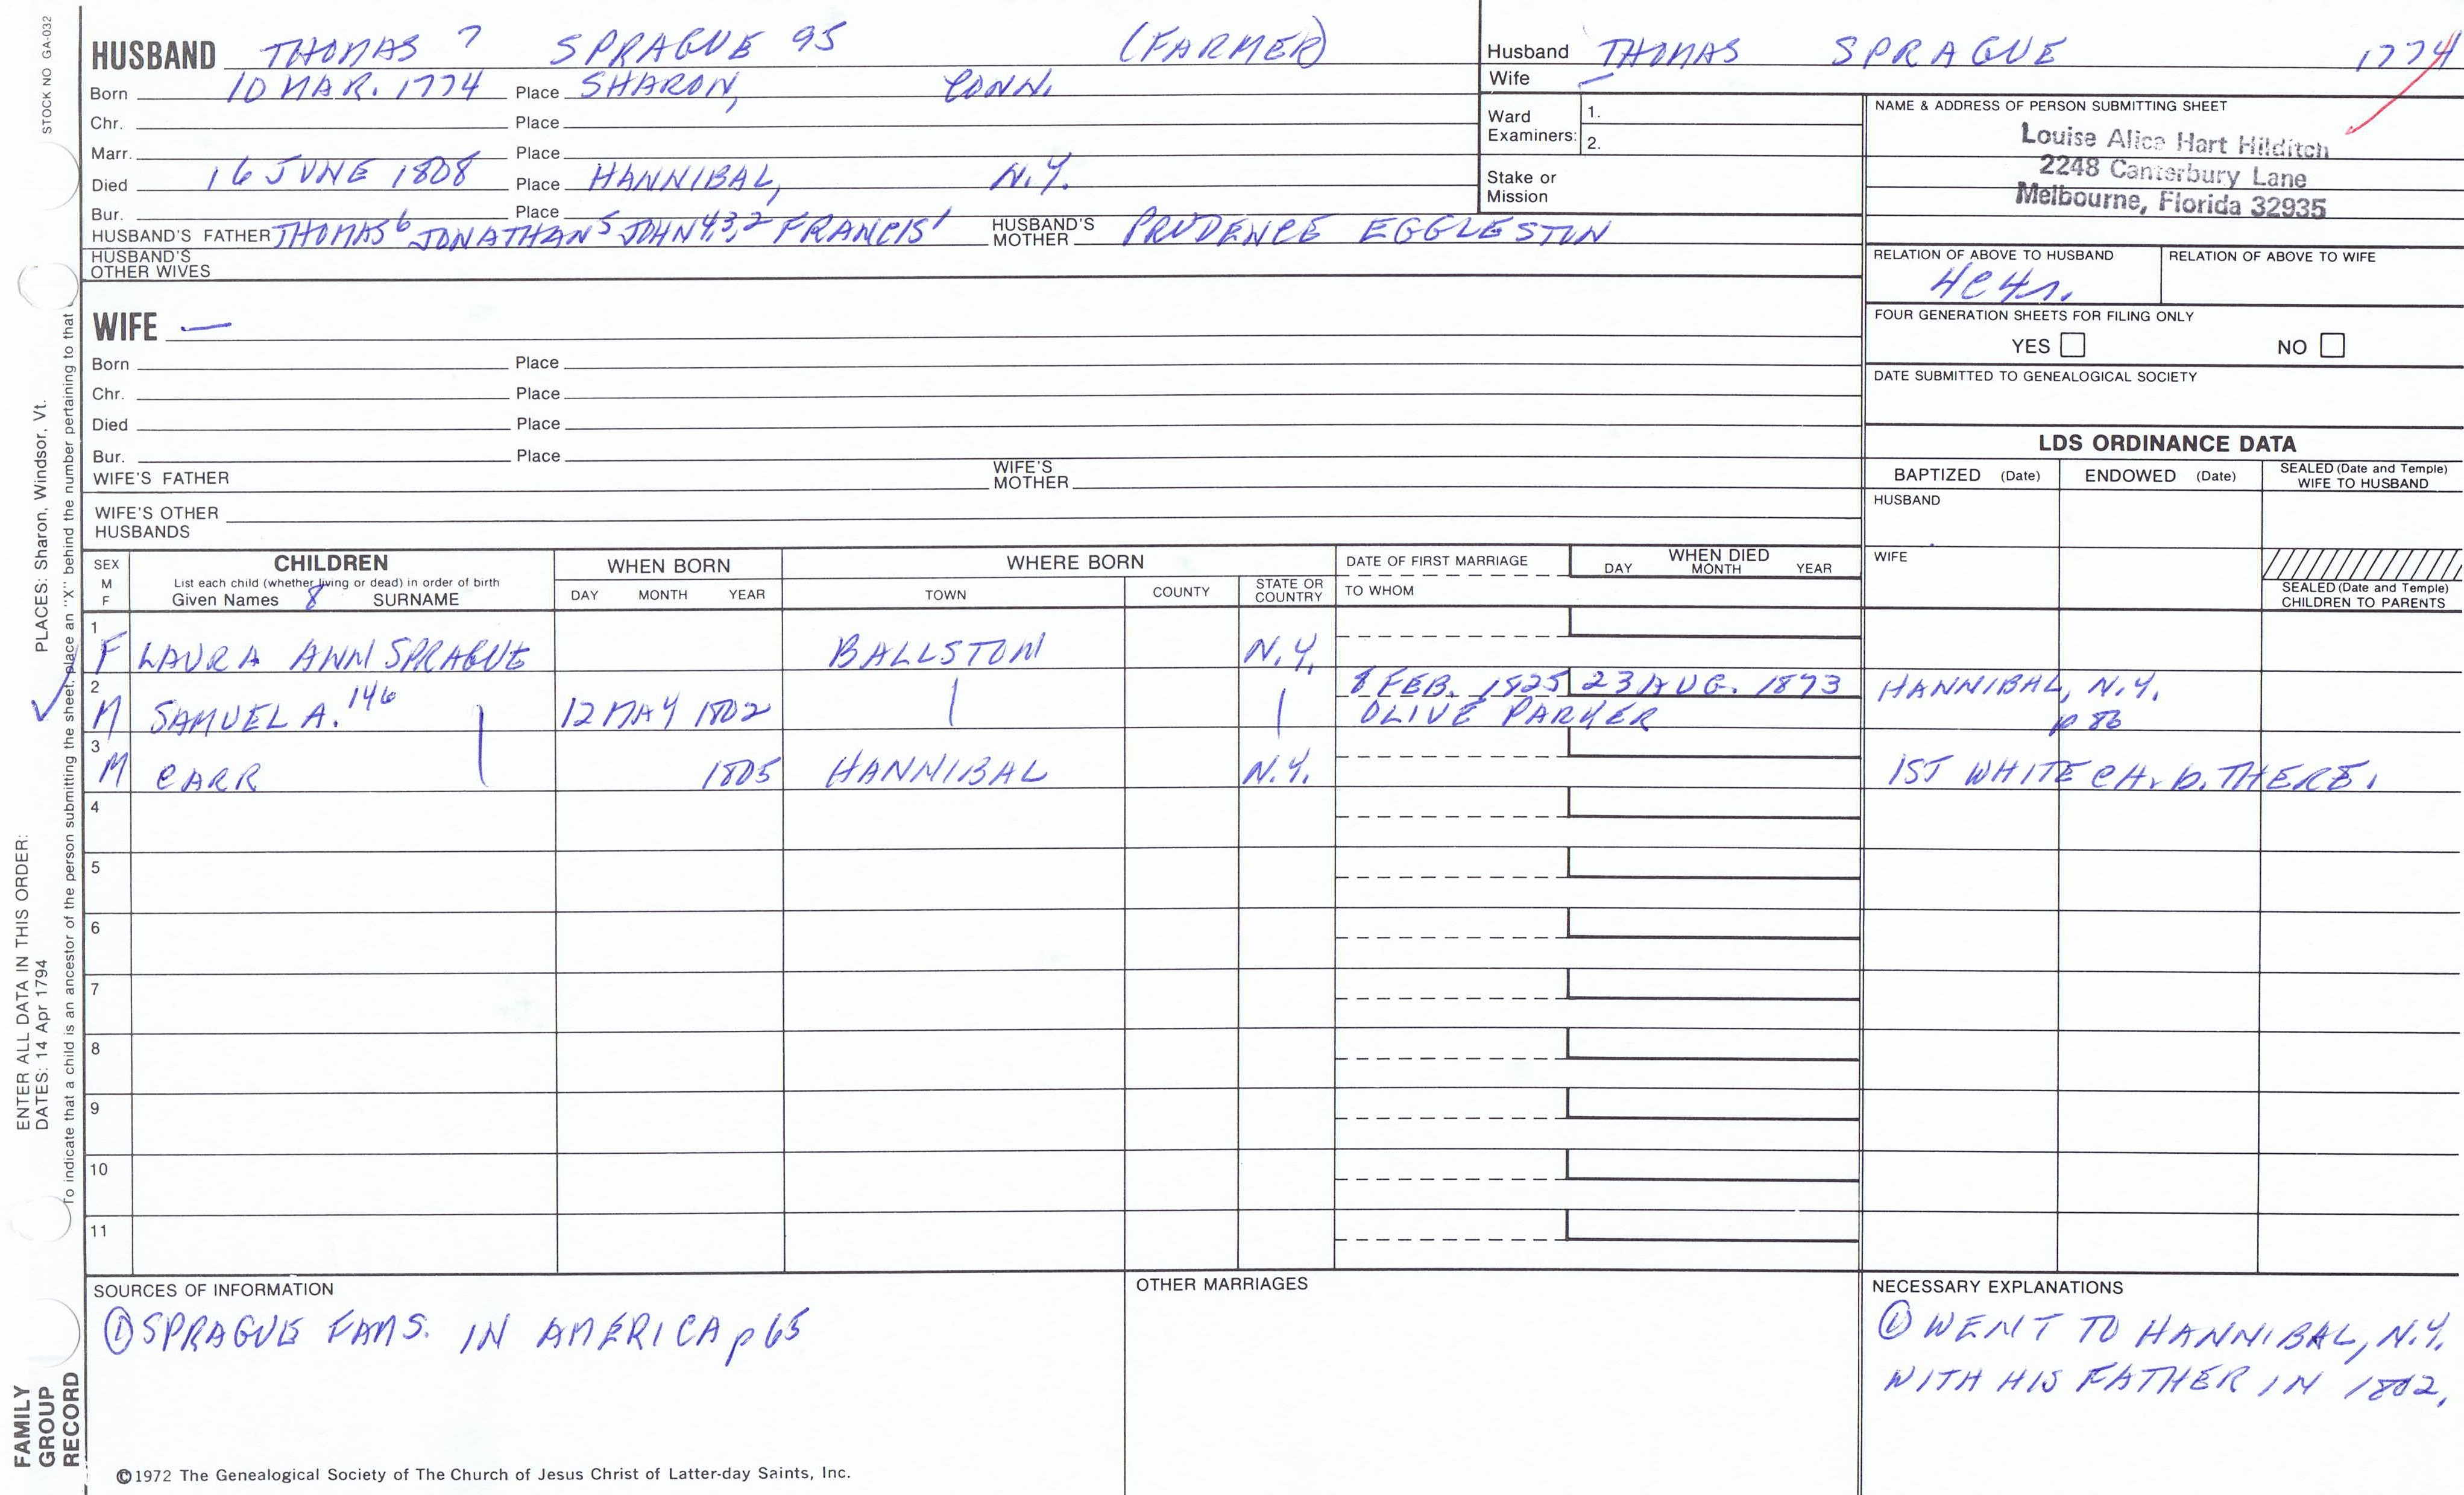 STOCK NO GA-032
HUSBAND THOMAS 7 SPRAGUE 95 (FARMER)
Born 10 MAR. 1774 Place SHARON, CONN.
Chr. Place
Marr. Place
Died 16 JUNE 1808 Place HANNIBAL, N.Y.
Bur. Place
HUSBAND'S FATHER THOMAS 6 JONATHAN 5 JOHN 4,3,2 FRANCIS 1 HUSBAND'S MOTHER PRUDENCE EGGLESTON
HUSBAND'S OTHER WIVES
Husband THOMAS SPRAGUE 1774
Wife —
Ward Examiners: 1.
2.
Stake or Mission
NAME & ADDRESS OF PERSON SUBMITTING SHEET
Louise Alice Hart Hilditch
2248 Canterbury Lane
Melbourne, Florida 32935
RELATION OF ABOVE TO HUSBAND RELATION OF ABOVE TO WIFE
4C4r.
FOUR GENERATION SHEETS FOR FILING ONLY
YES NO
DATE SUBMITTED TO GENEALOGICAL SOCIETY
WIFE —
Born Place
Chr. Place
Died Place
Bur. Place
WIFE'S FATHER WIFE'S MOTHER
WIFE'S OTHER HUSBANDS
LDS ORDINANCE DATA
BAPTIZED (Date) ENDOWED (Date) SEALED (Date and Temple) WIFE TO HUSBAND
HUSBAND
WIFE
SEALED (Date and Temple) CHILDREN TO PARENTS
SEX M F CHILDREN List each child (whether living or dead) in order of birth Given Names 8 SURNAME
WHEN BORN DAY MONTH YEAR
WHERE BORN TOWN COUNTY STATE OR COUNTRY
DATE OF FIRST MARRIAGE TO WHOM
WHEN DIED DAY MONTH YEAR
1 F LAURA ANN SPRAGUE BALLSTON N.Y.
2 M SAMUEL A. 146 | 12 MAY 1802 | | 8 FEB. 1825 23 AUG. 1873 HANNIBAL, N.Y.
OLIVE PARKER p 86
3 M CARR 1805 HANNIBAL N.Y. 1ST WHITE CH. b. THERE.
4
5
6
7
8
9
10
11
SOURCES OF INFORMATION
① SPRAGUE FAMS. IN AMERICA p 65
OTHER MARRIAGES
NECESSARY EXPLANATIONS
① WENT TO HANNIBAL, N.Y.
WITH HIS FATHER IN 1802.
©1972 The Genealogical Society of The Church of Jesus Christ of Latter-day Saints, Inc.
FAMILY GROUP RECORD
ENTER ALL DATA IN THIS ORDER:
DATES: 14 Apr 1794 PLACES: Sharon, Windsor, Vt.
To indicate that a child is an ancestor of the person submitting the sheet, place an "X" behind the number pertaining to that